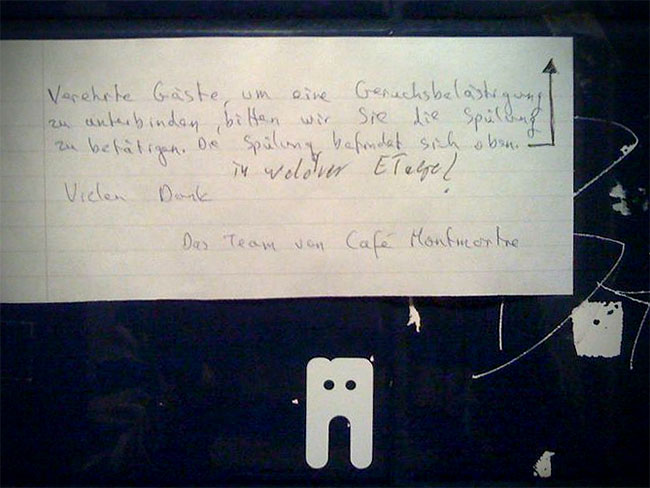 Verehrte Gäste, um eine Geruchsbelästigung
zu unterbinden, bitten wir Sie die Spülung
zu betätigen. Die Spülung befindet sich oben.
in welcher ETage?
Vielen Dank
Das Team von Café Montmartre